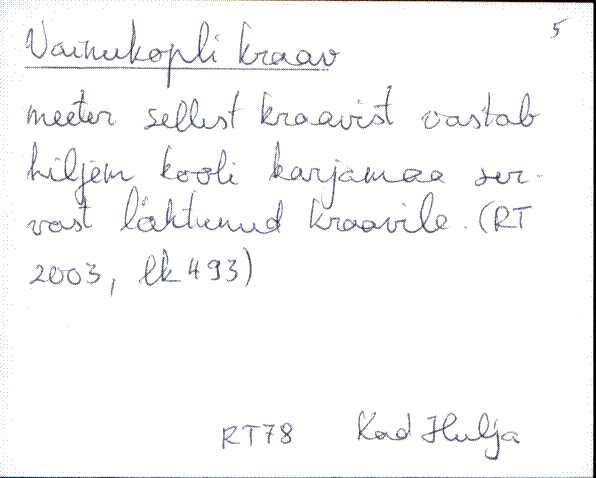 5
Vainukopli kraav
meeter sellest kraavist vastab
hiljem kooli karjamaa ser-
vast lähtunud kraavile. (RT
2003, lk 493)
RT78 Kad Hulja